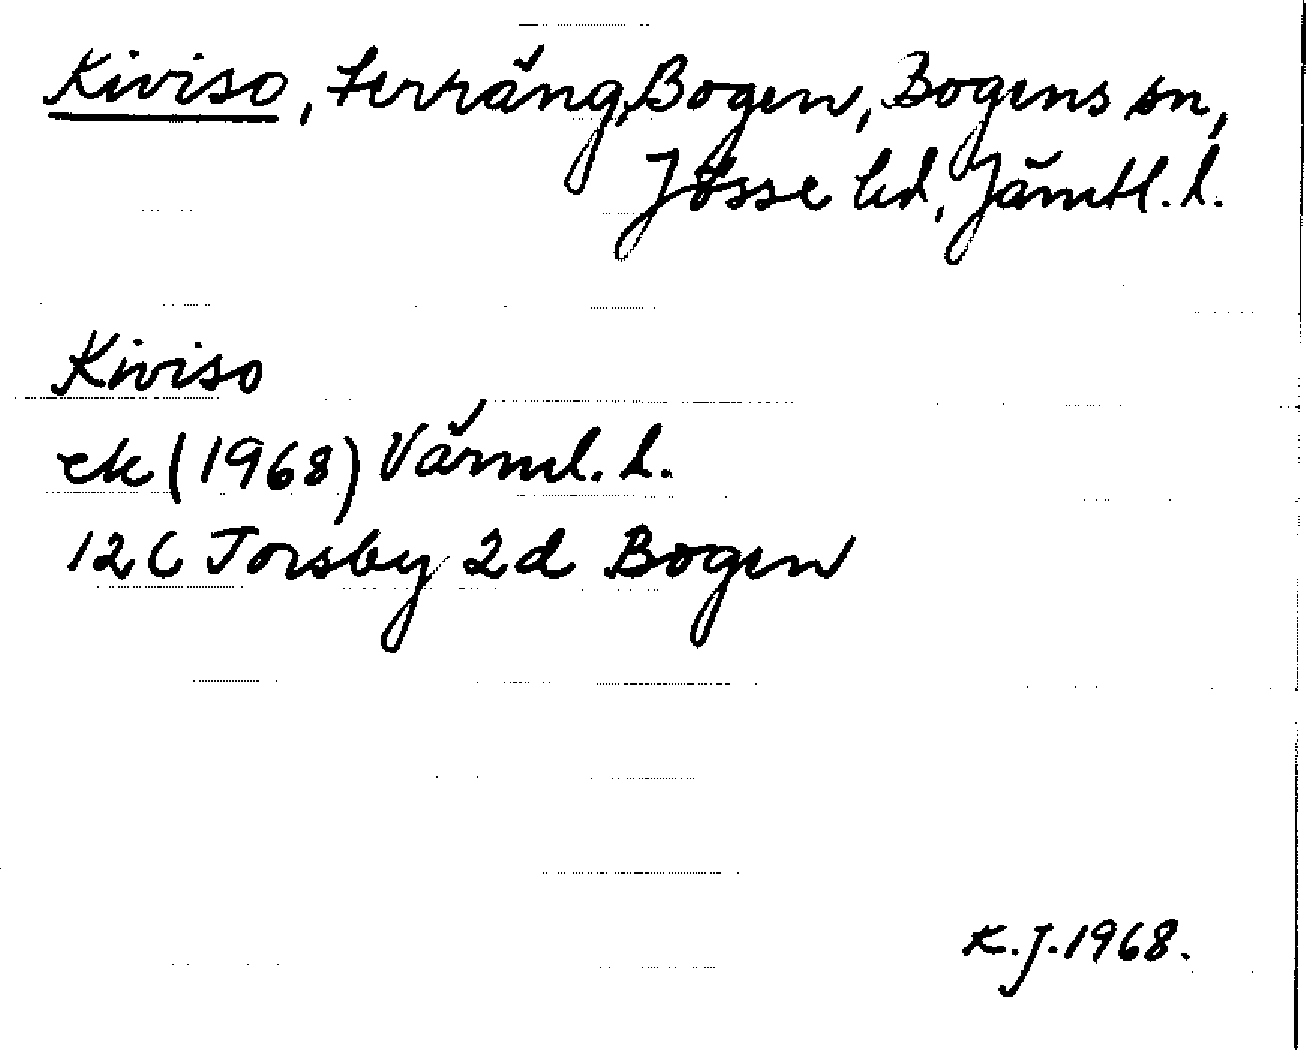 Kiviso, terräng, Bogen, Bogens sn,
Jösse hd, Jämtl. l.
Kiviso
ek (1968) Värml. l.
12 C Torsby 2d Bogen
K.J. 1968.